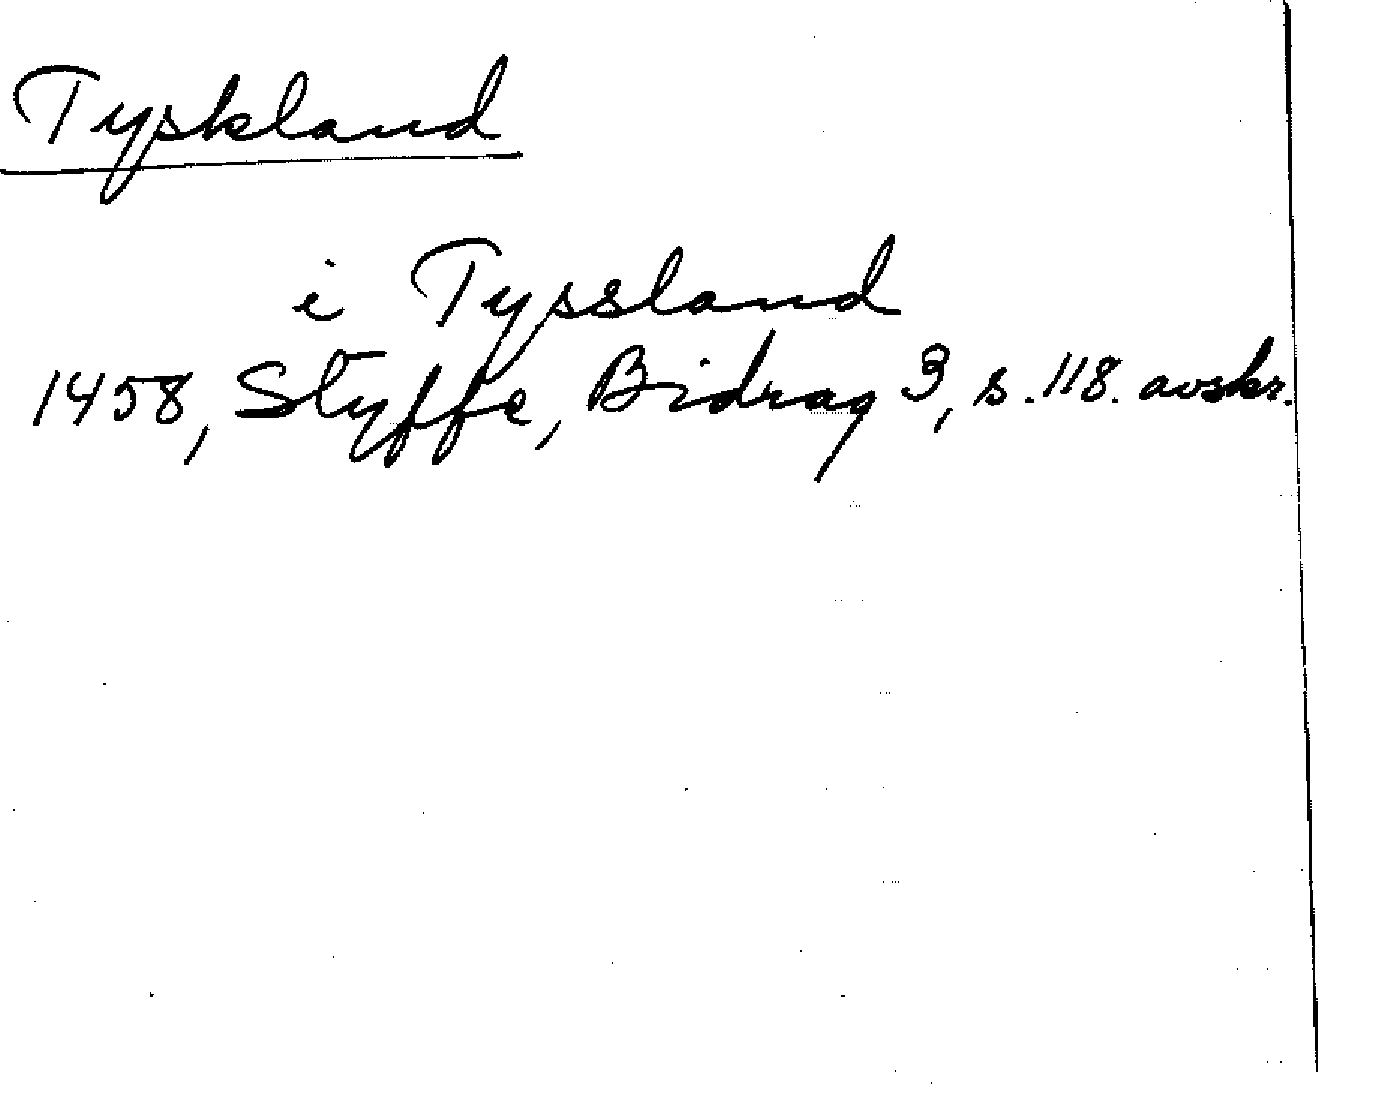 Tyskland
i Tyssland
1458, Styffe, Bidrag 3, s. 118. avskr.